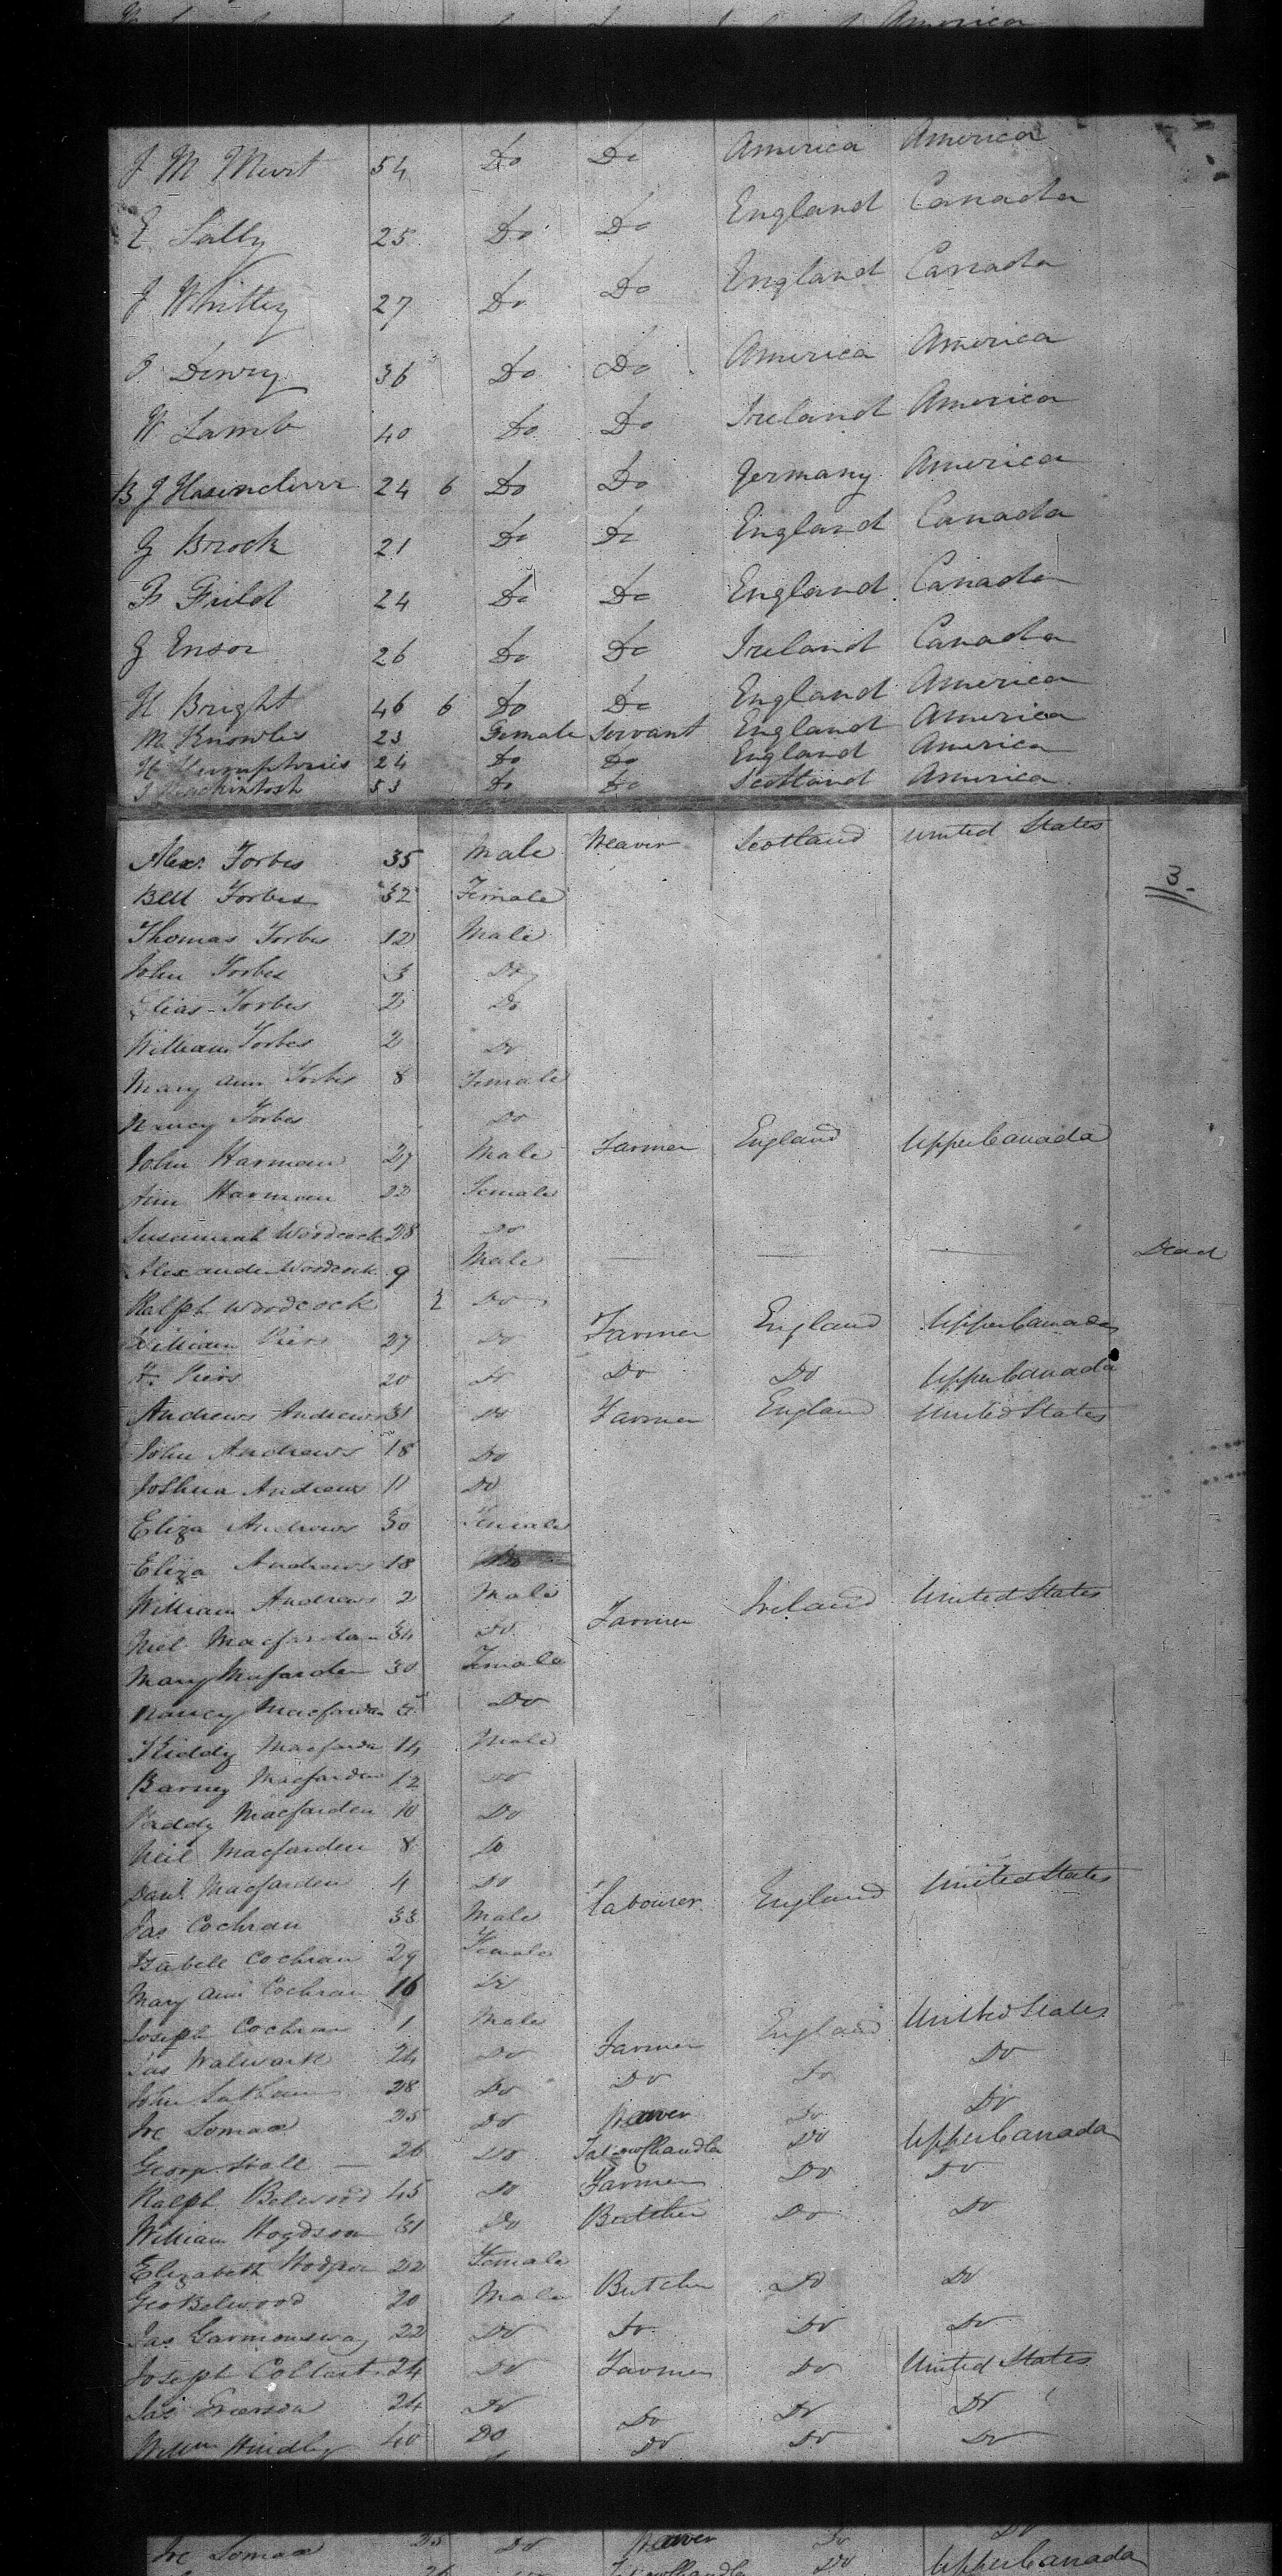 America
J M Murt 54 Do Do America America
E Sally 25 Do Do England Canada
J Whitley 27 Do Do England Canada
J Dewry 36 Do Do America America
W Lamb 40 Do Do Ireland America
B J 24 6 Do Do Germany America
G Brock 21 Do Do England Canada
F Field 24 Do Do England Canada
G Ensor 26 Do Do Ireland Canada
H Bright 46 6 Do Do England America
M Knowles 23 Female Servant England America
H Humphries 24 Do Do England America
J Mackintosh 53 Do Do Scotland America
Alexr. Forbes 35 Male Weaver Scotland United States
Bell Forbes 32 Female
3
Thomas Forbes 12 Male
John Forbes 3 Do
Elias Forbes 2 Do
William Forbes 2 Do
Mary Ann Forbes 8 Female
Nancy Forbes Do
John Harman 27 Male Farmer England Upper Canada
Ann Harman 22 Female
Susannah Woodcock 28 Do
Alexander Woodcock 9 Male Dead
Ralph Woodcock 2 Do
William Piers 27 Do Farmer England Upper Canada
Piers 20 Do Do Do Upper Canada
Andrews Andrews 31 Do Farmer England United States
John Andrews 18 Do
Joshua Andrews 11 Do
Eliza Andrews 30 Female
Eliza Andrews 18 Do
William Andrews 2 Male
Niel Macfarden 34 Do Farmer Ireland United States
Mary Macfarden 30 Female
Nancy Macfarden Do
Macfarden 14 Male
Barney Macfarden 12 Do
Paddy Macfarden 10 Do
Neil Macfarden 8 Do
Danl. Macfarden 4 Do
Jas Cochran 33 Male Labourer England United States
Isabell Cochran 29 Female
Mary Ann Cochran 16 Do
Joseph Cochran 1 Male
Jas Walwark 24 Do Farmer England United States
John Latham 28 Do Do Do Do
Lomax 25 Do Weaver Do Do
George Hall 26 Do Tallow Chandler Do Upper Canada
Ralph Belwood 45 Do Farmer Do Do
William Hogdson 31 Do Butcher Do Do
Elizabeth 22 Female
Geo Belwood 20 Male Butcher Do Do
Jas Garmonsway 22 Do Do Do Do
Joseph Coltart 24 Do Farmer Do United States
Jas 24 Do Do Do Do
Willm Hindley 40 Do Do Do Do
Lomax 25 Do Weaver Do Do
26 Do Upper Canada